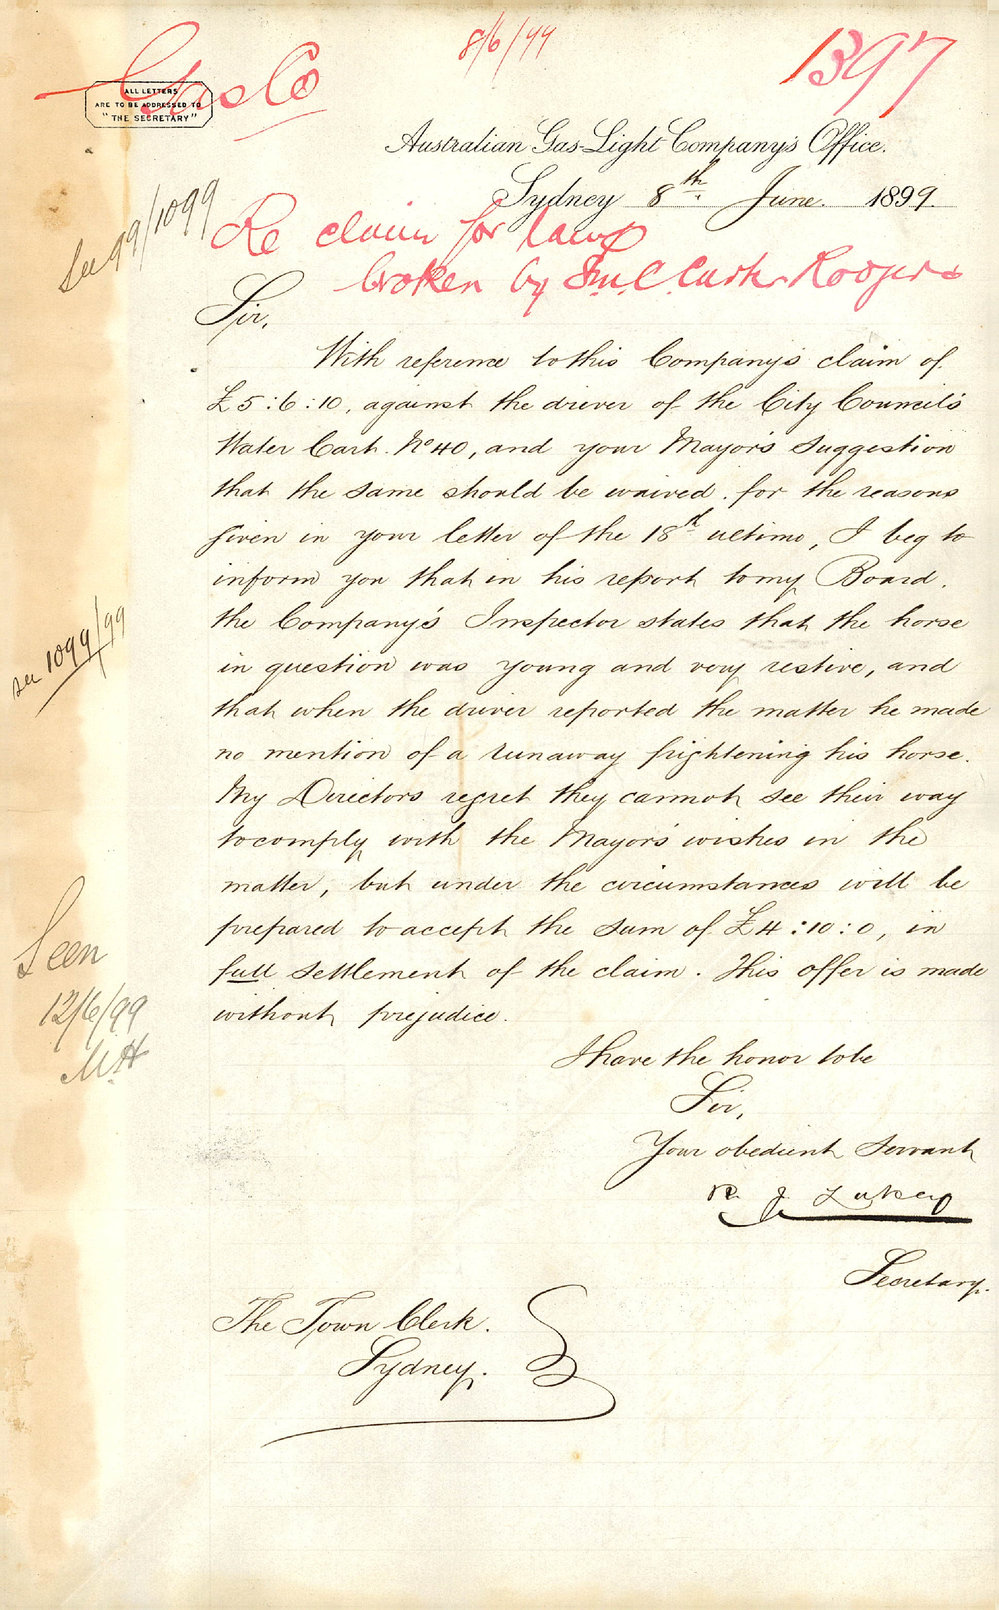 8/6/99
1397
Gas Co
ALL LETTERS
ARE TO BE ADDRESSED TO
"THE SECRETARY"
Australian Gas-Light Company's Office.
Sydney 8th June. 1899.
See 99/1099
Re claim for lamp
broken by Cart Rodgers
Sir,
With reference to this Company's claim of
£5:6:10, against the driver of the City Council's
Water Cart. No 40, and your Mayor's suggestion
that the same should be waived. for the reasons
given in your letter of the 18th ultimo, I beg to
inform you that in his report to my Board.
the Company's Inspector states that the horse
in question was young and very restive, and
that when the driver reported the matter he made
no mention of a runaway frightening his horse.
My Directors regret they cannot see their way
to comply with the Mayor's wishes in the
matter, but under the circumstances will be
prepared to accept the sum of £4:10:0, in
full settlement of the claim. This offer is made
without prejudice.
see 1099/99
Seen
12/6/99
I have the honor to be
Sir,
Your obedient Servant
R. J. Lukey
Secretary.
The Town Clerk.
Sydney.